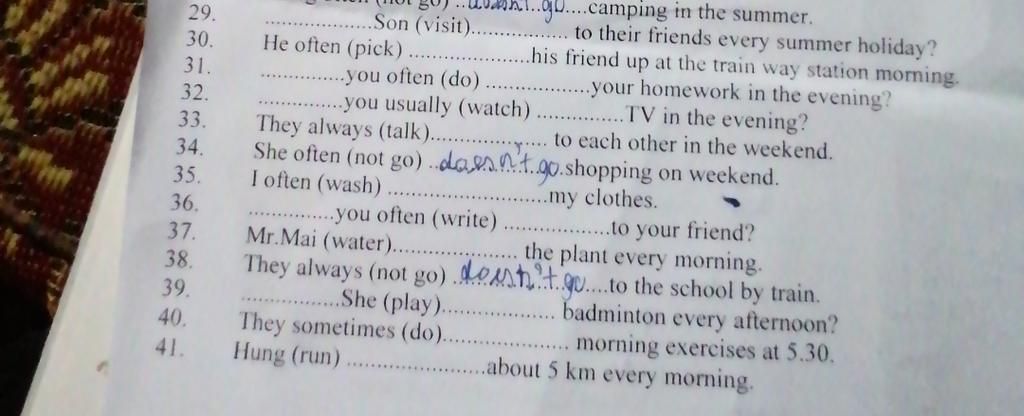 (not go) ..doesn't go....camping in the summer.
29. ..................Son (visit)................ to their friends every summer holiday?
30. He often (pick) ....................his friend up at the train way station morning.
31. ..............you often (do) .................your homework in the evening?
32. ..............you usually (watch) ..............TV in the evening?
33. They always (talk).................... to each other in the weekend.
34. She often (not go) ..doesn't go.shopping on weekend.
35. I often (wash) ..........................my clothes.
36. ..............you often (write) .................to your friend?
37. Mr.Mai (water).................... the plant every morning.
38. They always (not go) .doesn't go....to the school by train.
39. ................She (play).................. badminton every afternoon?
40. They sometimes (do).................... morning exercises at 5.30.
41. Hung (run) .......................about 5 km every morning.